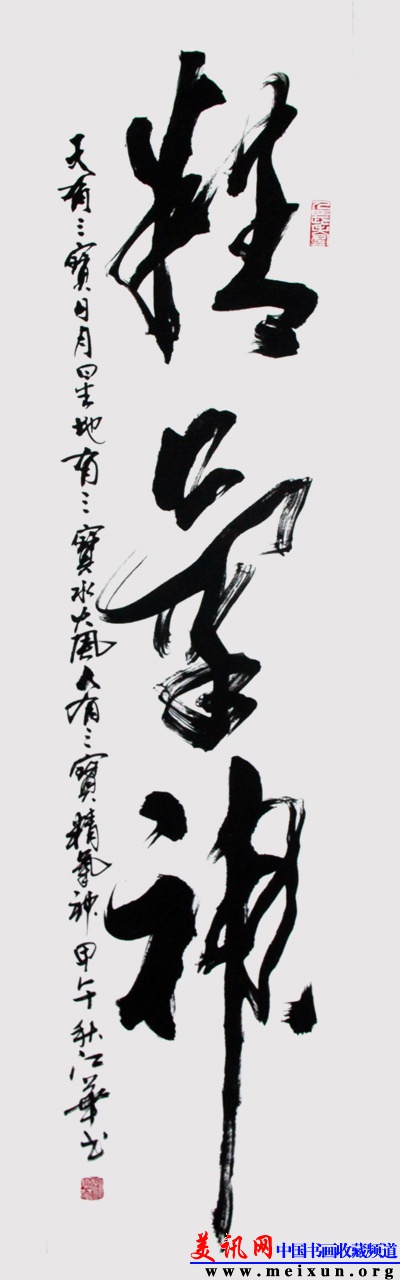 精氣神
天有三寶日月星地有三寶水火風人有三寶精氣神甲午秋江華书
美讯网 中国书画收藏频道
www.meixun.org